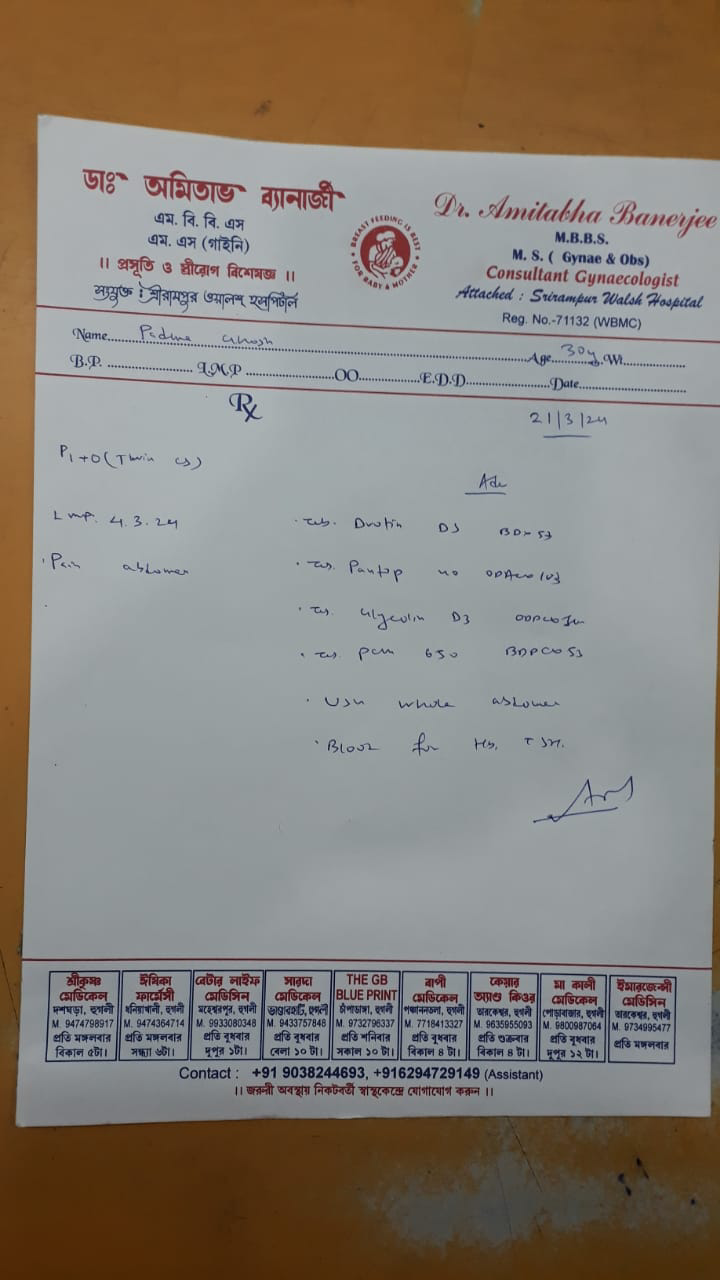 ডাঃ অমিতাভ ব্যানার্জী
এম. বি. বি. এস
এম. এস (গাইনি)
।। প্রসূতি ও স্ত্রীরোগ বিশেষজ্ঞ ।।
সংযুক্ত : শ্রীরামপুর ওয়ালশ হসপিটাল
BREAST FEEDING IS BEST
FOR BABY & MOTHER
Dr. Amitabha Banerjee
M.B.B.S.
M. S. ( Gynae & Obs)
Consultant Gynaecologist
Attached : Srirampur Walsh Hospital
Reg. No.-71132 (WBMC)
Name Padma Ghosh Age 30y Wt
B.P. L.M.P OO E.D.D Date
Rx
21/3/24
P1+0 (Twin CS)
Adv
LMP. 4.3.24
Pain abdomen
Tab. Drotin DS BD x 5d
Tab. Pantop 40
Tab. D3
Tab. PCM 650 BDPC x 5d
USG whole abdomen
Blood for Hb, TSH.
শ্রীকৃষ্ণ মেডিকেল
দশঘড়া, হুগলী
M. 9474798917
প্রতি মঙ্গলবার
বিকাল ৫টা।
ঈষিকা ফার্মেসী
ধনিয়াখালী, হুগলী
M. 9474364714
প্রতি মঙ্গলবার
সন্ধ্যা ৬টা।
বেটার লাইফ মেডিসিন
মহেশ্বরপুর, হুগলী
M. 9933080348
প্রতি বুধবার
দুপুর ১টা।
সারদা মেডিকেল
ভাণ্ডারহাটি, হুগলী
M. 9433757848
প্রতি বুধবার
বেলা ১০ টা।
THE GB BLUE PRINT
চাঁপাডাঙ্গা, হুগলী
M. 9732796337
প্রতি শনিবার
সকাল ১০ টা।
বাপী মেডিকেল
হুগলী
M. 7718413327
প্রতি বুধবার
বিকাল ৪ টা।
কেয়ার অ্যাণ্ড কিওর
তারকেশ্বর, হুগলী
M. 9635955093
প্রতি শুক্রবার
বিকাল ৪ টা।
মা কালী মেডিকেল
হুগলী
M. 9800987064
প্রতি বুধবার
দুপুর ১২ টা।
ইমারজেন্সী মেডিসিন
তারকেশ্বর, হুগলী
M. 9734995477
প্রতি মঙ্গলবার
Contact : +91 9038244693, +916294729149 (Assistant)
।। জরুরী অবস্থায় নিকটবর্তী স্বাস্থকেন্দ্রে যোগাযোগ করুন ।।